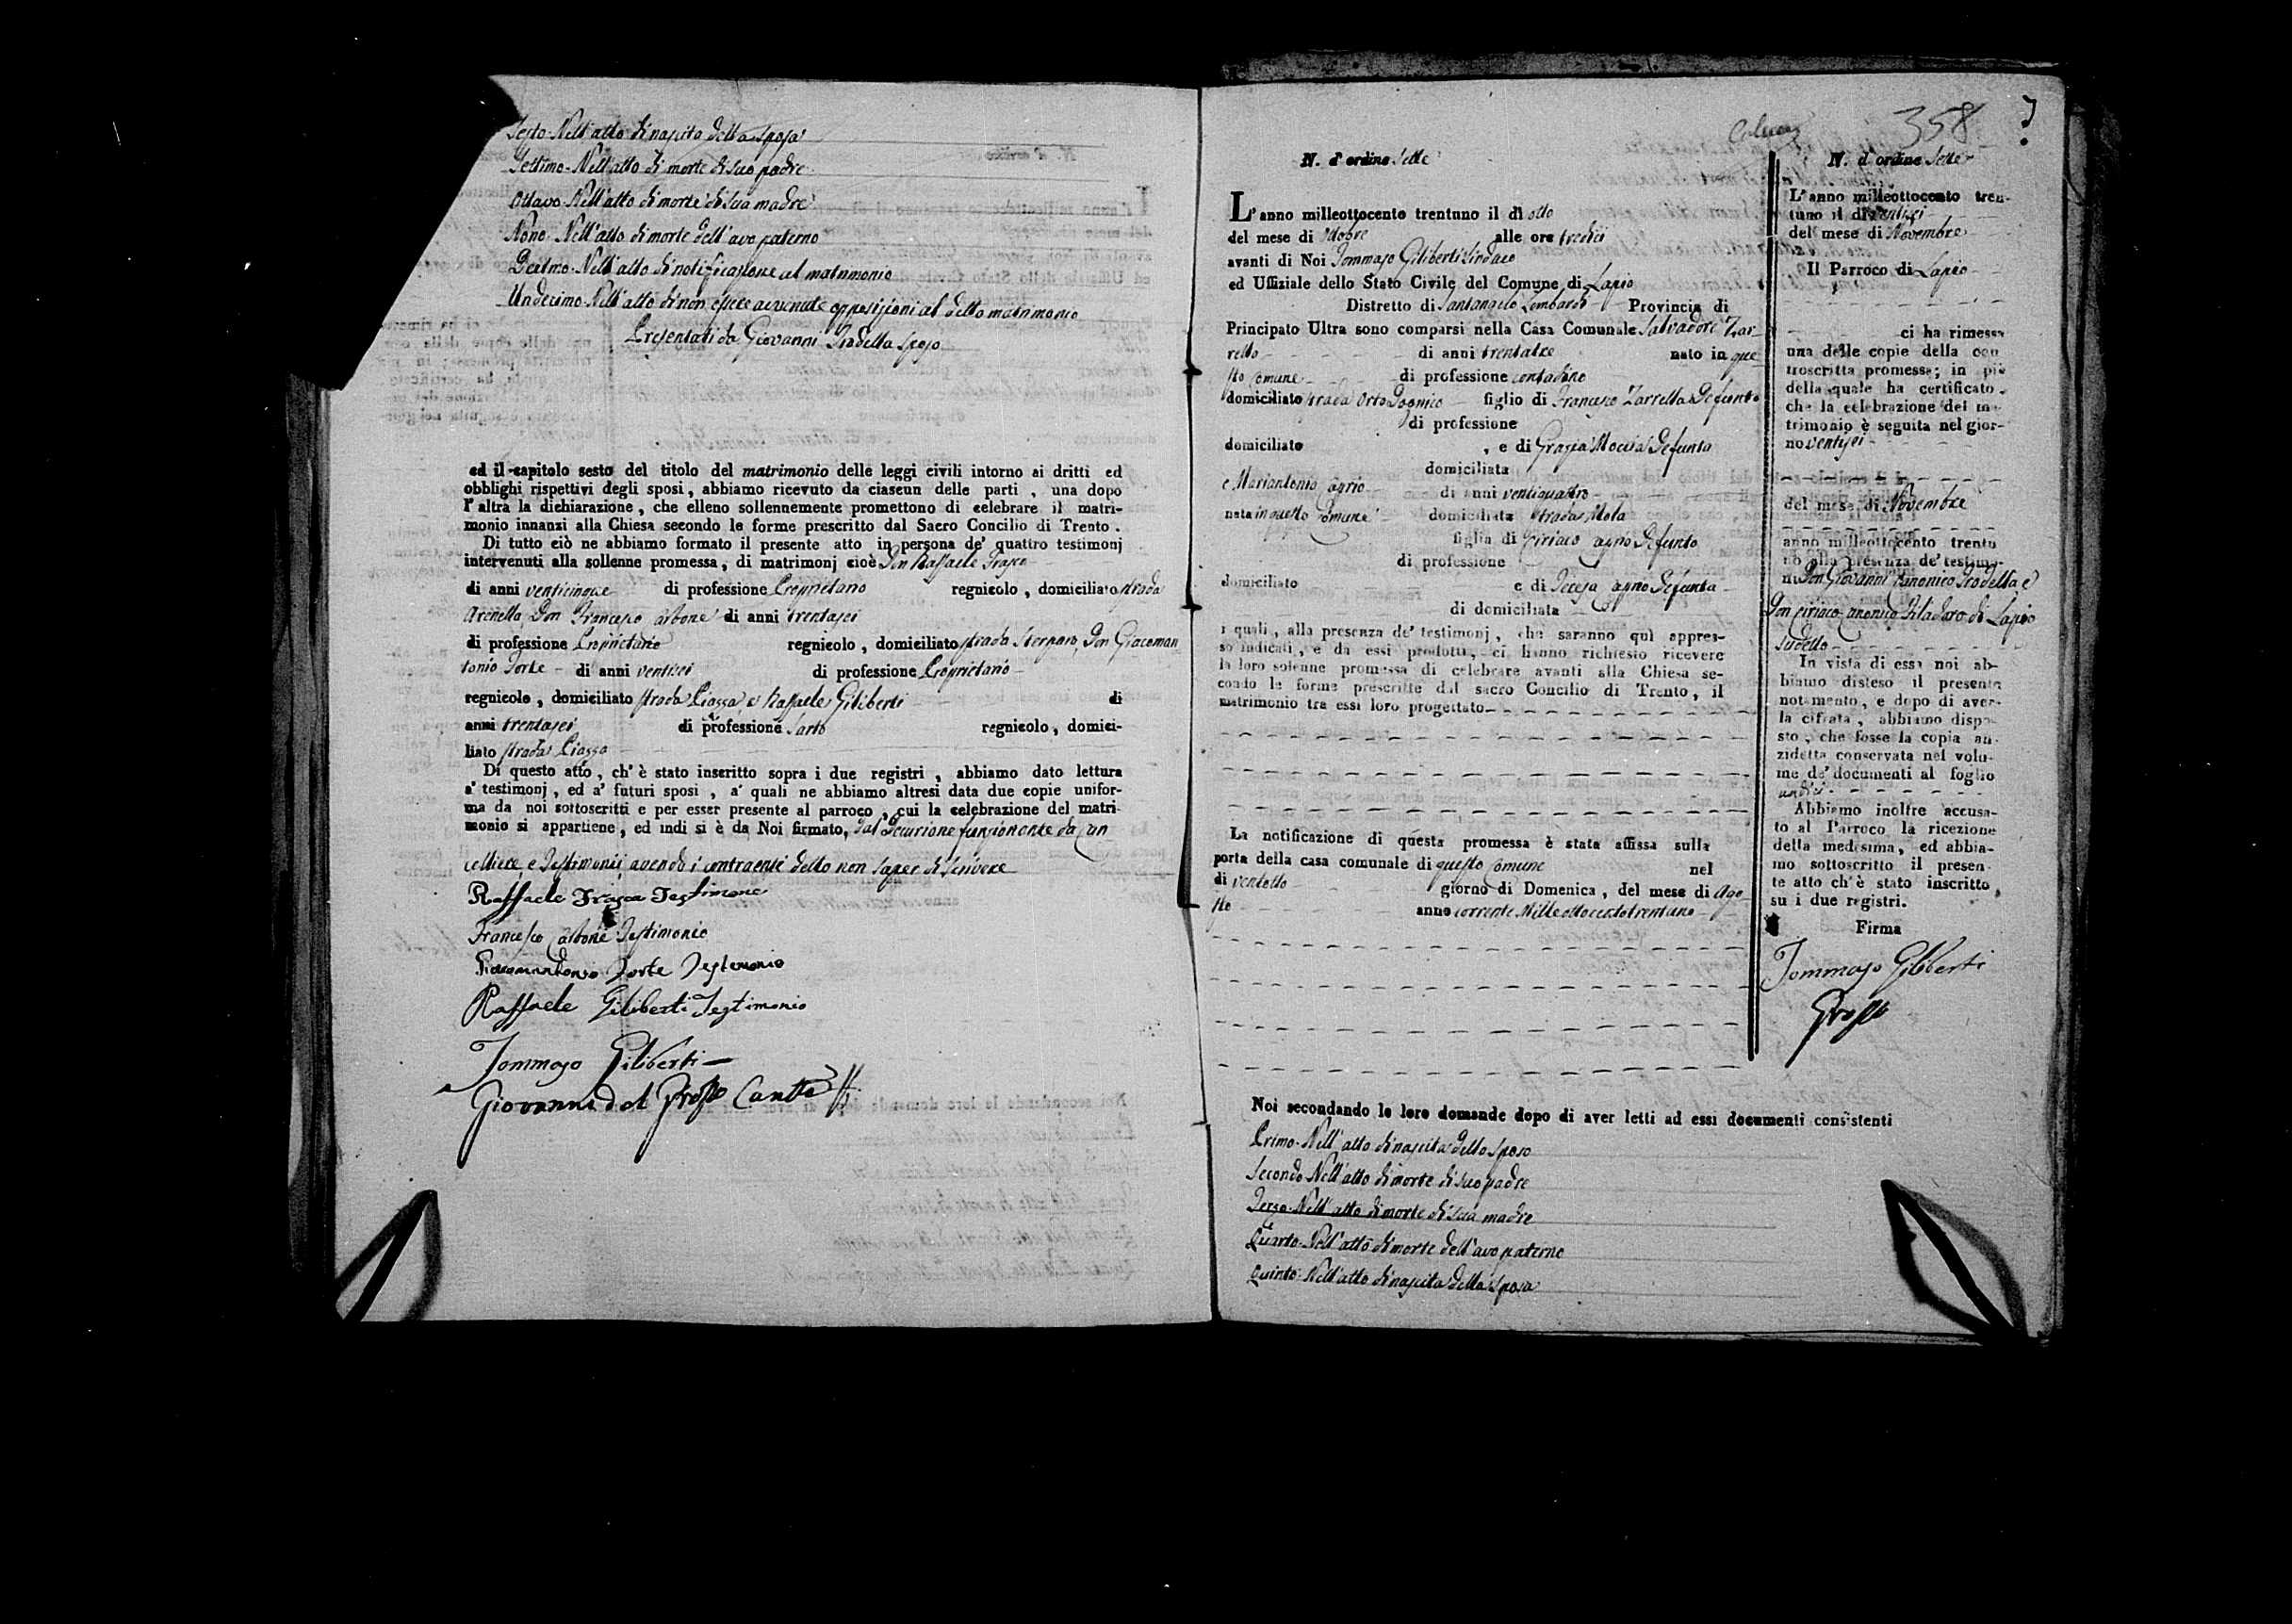 Sesto. Nell'atto di nascita della sposa
Settimo. Nell'atto di morte di suo padre
Ottavo. Nell'atto di morte di sua madre
Nono. Nell'atto di morte dell'avo paterno
Decimo. Nell'atto di notificazione al matrimonio
Undecimo. Nell'atto di non essere avvenute opposizioni al detto matrimonio
Presentati da Giovanni Trodella sposo
ed il capitolo sesto del titolo del matrimonio delle leggi civili intorno ai dritti ed
obblighi rispettivi degli sposi, abbiamo ricevuto da ciascun delle parti, una dopo
l'altra la dichiarazione, che elleno sollennemente promettono di celebrare il matri-
monio innanzi alla Chiesa secondo le forme prescritto dal Sacro Concilio di Trento.
Di tutto ciò ne abbiamo formato il presente atto in persona de' quattro testimonj
intervenuti alla sollenne promessa, di matrimonj cioè Don Raffaele Frasca
di anni venticinque di professione Proprietario regnicolo, domiciliato strada
Arenella, Don Francesco Carbone di anni trentasei
di professione Proprietario regnicolo, domiciliato strada Don Giacoman
tonio Forte di anni ventisei di professione Proprietario
regnicolo, domiciliato strada Piazza, e Raffaele Giliberti di
anni trentasei di professione Sarto regnicolo, domici-
liato strada Piazza
Di questo atto, ch'è stato inscritto sopra i due registri, abbiamo dato lettura
a' testimonj, ed a' futuri sposi, a' quali ne abbiamo altresì data due copie unifor-
ma da noi sottoscritti e per esser presente al parroco, cui la celebrazione del matri-
monio si appartiene, ed indi si è da Noi firmato, dal Decurione funzionante da Can
celliere, e Testimonii, avendo i contraenti detto non saper di scrivere
Raffaele Frasca Testimone
Francesco Carbone Testimonio
Giacomantonio Forte Testimonio
Raffaele Giliberti Testimonio
Tommaso Giliberti
Giovanni del Grosso
358
7
N. d'ordine Sette
L'anno milleottocento trentuno il dì otto
del mese di Ottobre alle ore tredici
avanti di Noi Tommaso Giliberti Sindaco
ed Uffiziale dello Stato Civile del Comune di Lapio
Distretto di Santangelo Lombardi Provincia di
Principato Ultra sono comparsi nella Casa Comunale Salvadore Zar
rello di anni trentatre nato in que
sto Comune di professione contadino
domiciliato strada Orto figlio di Francesco Zarrella Defunto
di professione
domiciliato , e di Grazia Moccia Defunta
domiciliata
e Mariantonia Cagno di anni ventiquattro
nata in questo Comune domiciliata strada Mola
figlia di Ciriaco Cagno Defunto
di professione
domiciliato e di Teresa Cagno Defunta
di domiciliata
i quali, alla presenza de' testimonj, che saranno quì appres-
so indicati, e da essi prodotti, ci hanno richiesto ricevere
la loro solenne promessa di celebrare avanti alla Chiesa se-
condo le forme prescritte dal sacro Concilio di Trento, il
matrimonio tra essi loro progettato
La notificazione di questa promessa è stata affissa sulla
porta della casa comunale di questo Comune nel
di ventotto giorno di Domenica, del mese di Ago
sto anno corrente Milleottocentotrentuno
Noi secondando le loro domande dopo di aver letti ad essi documenti consistenti
Primo. Nell'atto di nascita dello sposo
Secondo. Nell'atto di morte di suo padre
Terzo. Nell'atto di morte di sua madre
Quarto. Nell'atto di morte dell'avo paterno
Quinto. Nell'atto di nascita della sposa
N. d'ordine Sette
L'anno milleottocento tren-
tuno il di ventisei
del mese di Novembre
Il Parroco di Lapio
ci ha rimessa
una delle copie della con
troscritta promessa; in piè
della quale ha certificato
che la celebrazione del ma-
trimonio è seguita nel gior-
no ventisei
del mese di Novembre
anno milleottocento trentu
no alla presenza de' testimo-
nj Don Giovanni Canonico Trodella e
Don Ciriaco Canonico Filadoro di Lapio
sudetto
In vista di essa noi ab-
biamo disteso il presente
notamento, e dopo di aver-
la cifrata, abbiamo dispo-
sto, che fosse la copia an-
zidetta conservata nel volu-
me de' documenti al foglio
undici
Abbiamo inoltre accusa-
to al Parroco la ricezione
della medesima, ed abbia-
mo sottoscritto il presen-
te atto ch'è stato inscritto
su i due registri.
Firma
Tommaso Giliberti
Grosso